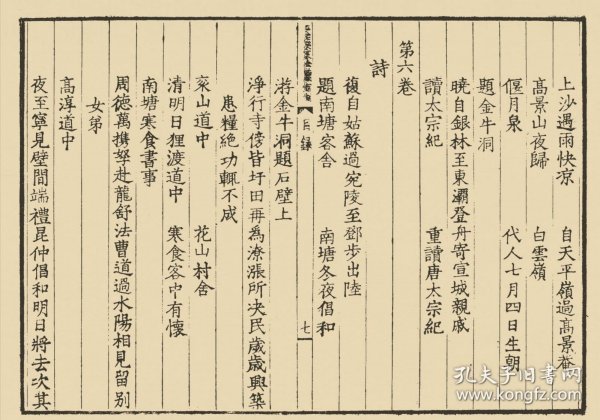 上沙遇雨快凉　自天平嶺過高景菴
高景山夜歸　白雲嶺
偃月泉　代人七月四日生朝
題金牛洞
曉自銀林至東灞登舟寄宣城親戚
讀太宗紀　重讀唐太宗紀
第六卷
詩
復自姑蘇過宛陵至鄧步出陸
題南塘客舍　南塘冬夜倡和
目錄　七
游金牛洞題石壁上
淨行寺傍皆圩田再為潦漲所決民歲歲興築
患糧絕功輒不成
寀山道中　花山村舍
清明日狸渡道中　寒食客中有懷
南塘寒食書事
周德萬攜孥赴龍舒法曹道過水陽相見留別
女弟
高淳道中
夜至寧見壁間端禮昆仲倡和明日將去次其
孔夫子旧书网
www.kongfz.com